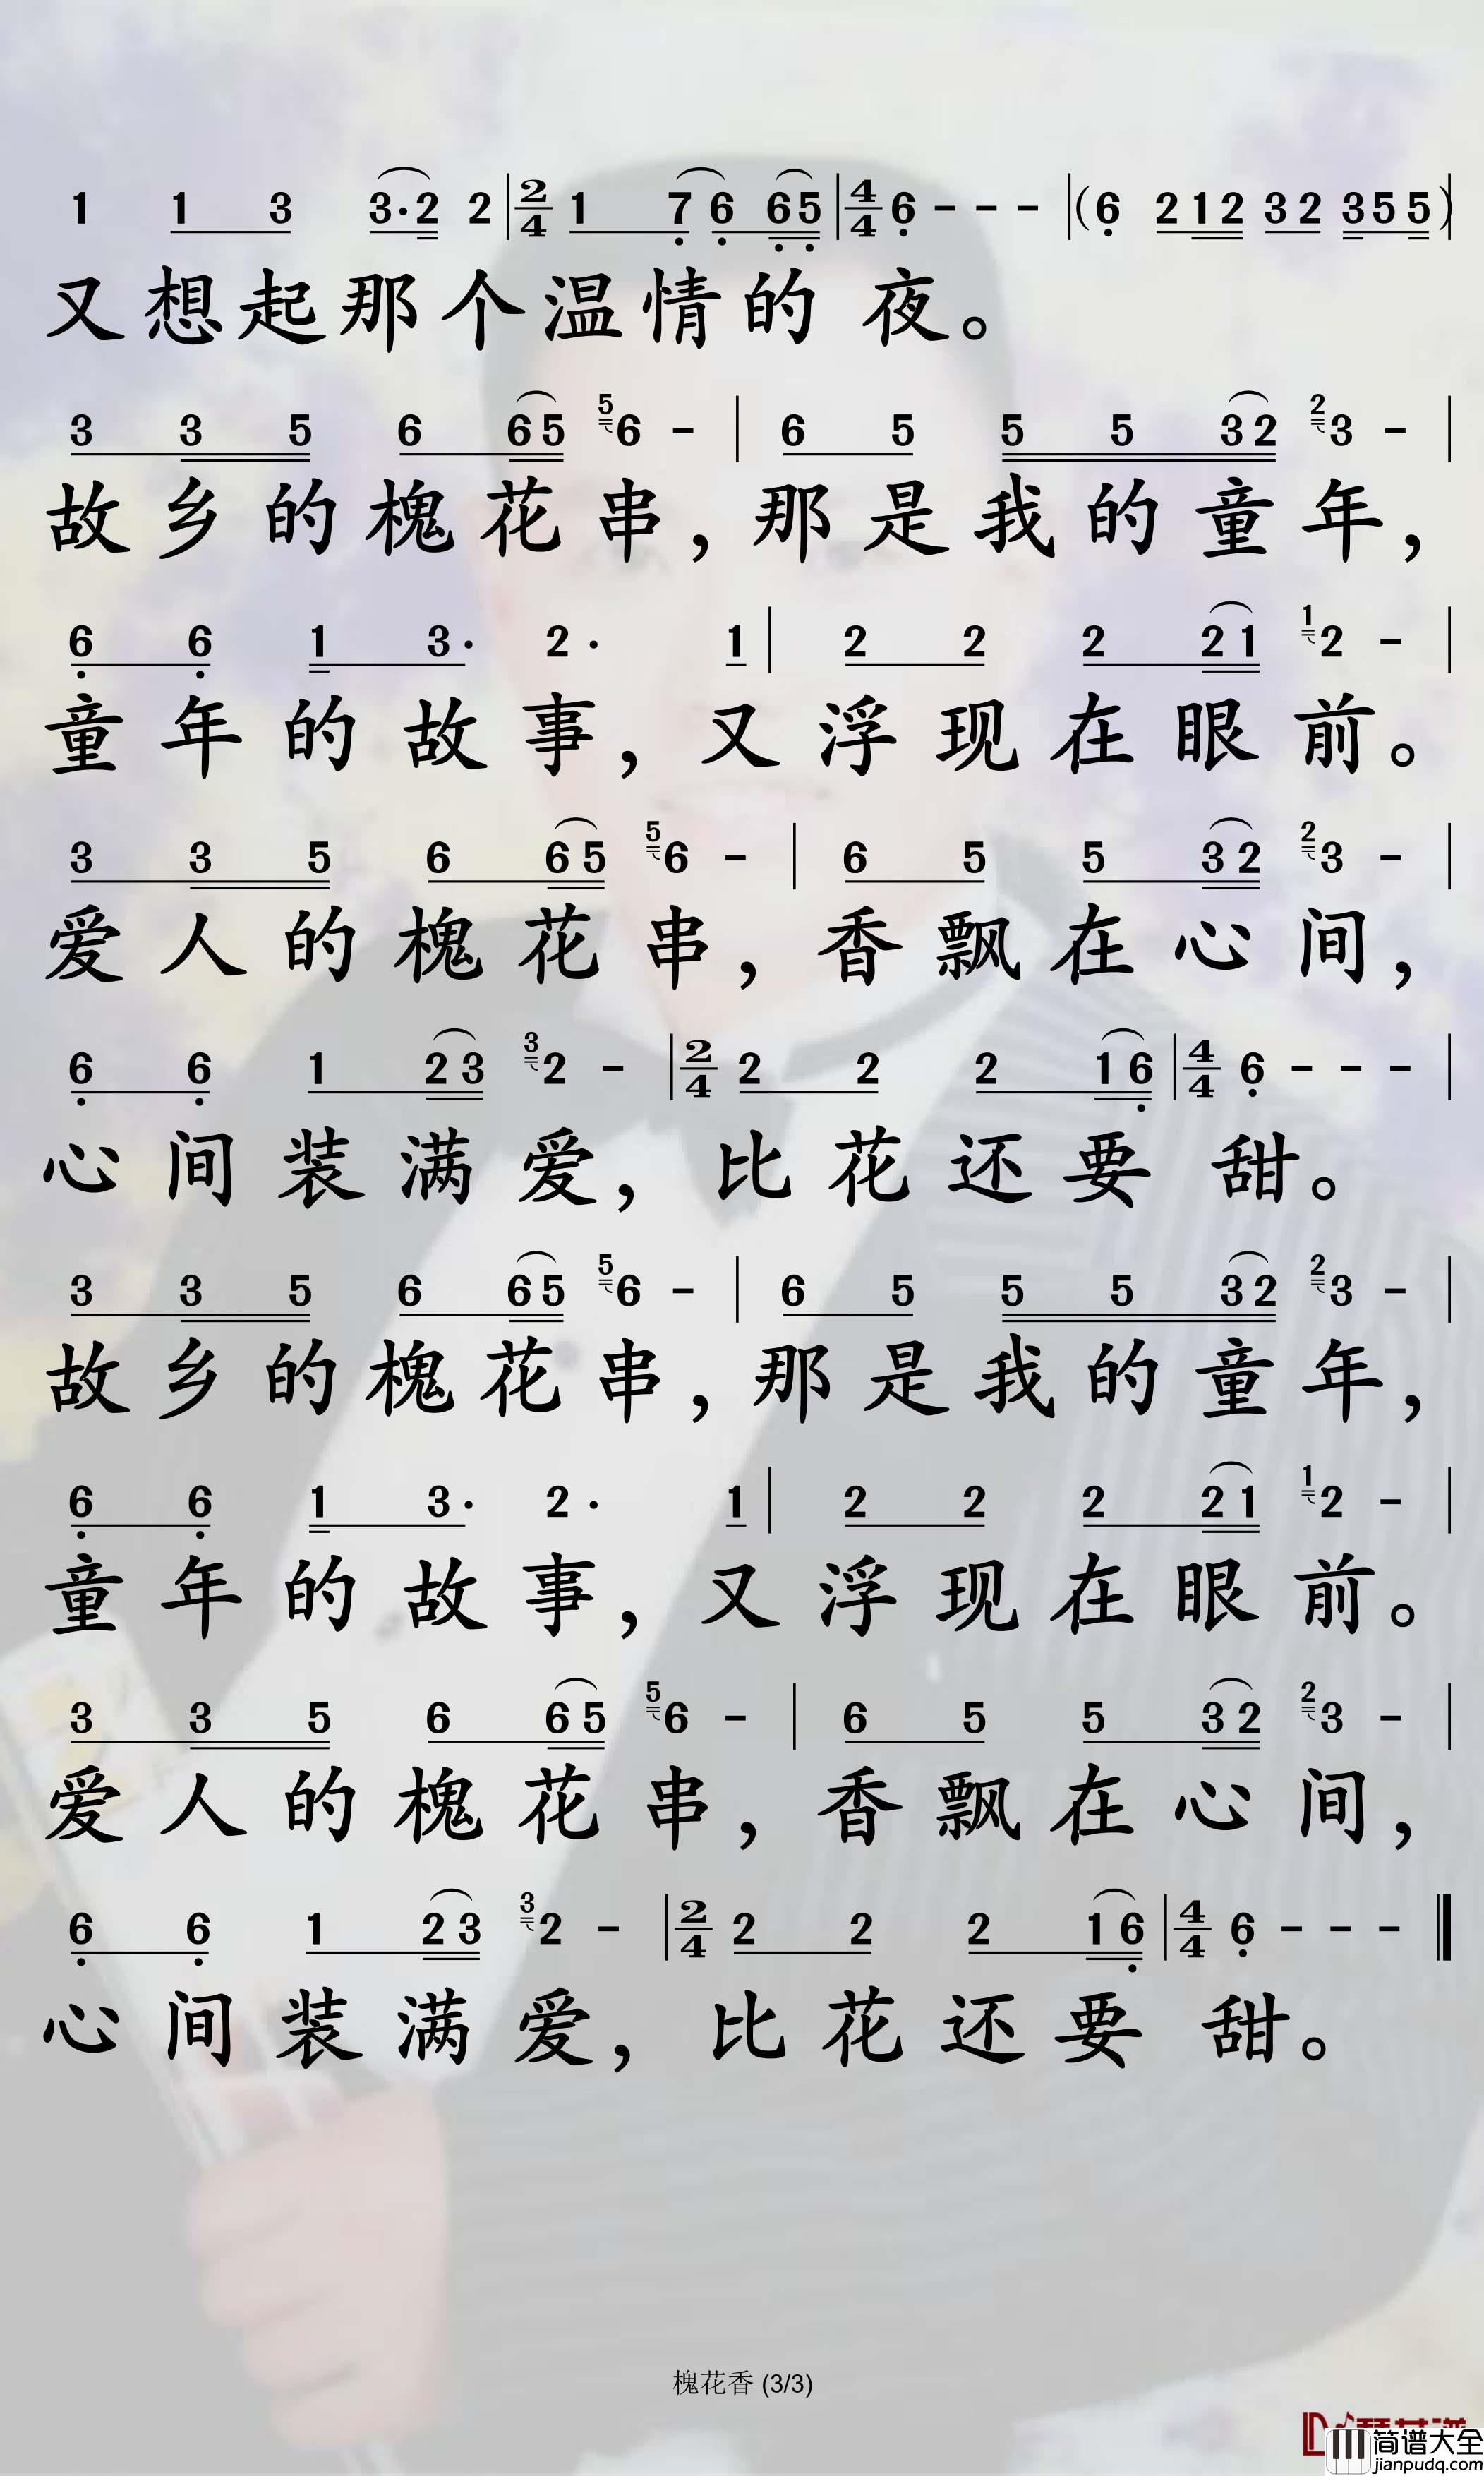 1 1 3 3·2 2 | 2/4 1 7 6 6 5 | 4/4 6 - - - | (6 2 1 2 3 2 3 5 5) |
又想起那个温情的 夜。
3 3 5 6 6 5 5 6 - | 6 5 5 5 3 2 2 3 - |
故乡的槐花串，那是我的童年，
6 6 1 3· 2· 1 | 2 2 2 2 1 1 2 - |
童年的故事，又浮现在眼前。
3 3 5 6 6 5 5 6 - | 6 5 5 3 2 2 3 - |
爱人的槐花串，香飘在心间，
6 6 1 2 3 3 2 - | 2/4 2 2 2 1 6 | 4/4 6 - - - |
心间装满爱，比花还要 甜。
3 3 5 6 6 5 5 6 - | 6 5 5 5 3 2 2 3 - |
故乡的槐花串，那是我的童年，
6 6 1 3· 2· 1 | 2 2 2 2 1 1 2 - |
童年的故事，又浮现在眼前。
3 3 5 6 6 5 5 6 - | 6 5 5 3 2 2 3 - |
爱人的槐花串，香飘在心间，
6 6 1 2 3 3 2 - | 2/4 2 2 2 1 6 | 4/4 6 - - - ‖
心间装满爱，比花还要 甜。
槐花香 (3/3)
简谱大全
jianpudq.com